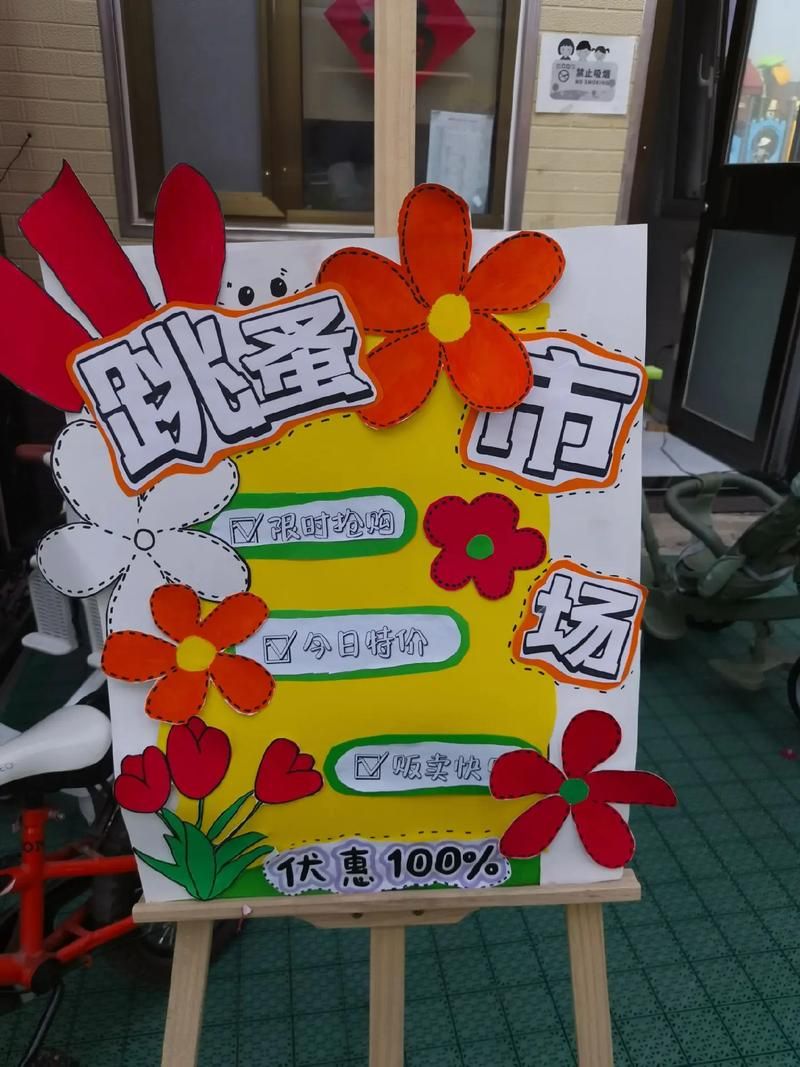 禁止吸烟
NO SMOKING
跳蚤
市
场
限时抢购
今日特价
贩卖快
优惠100%